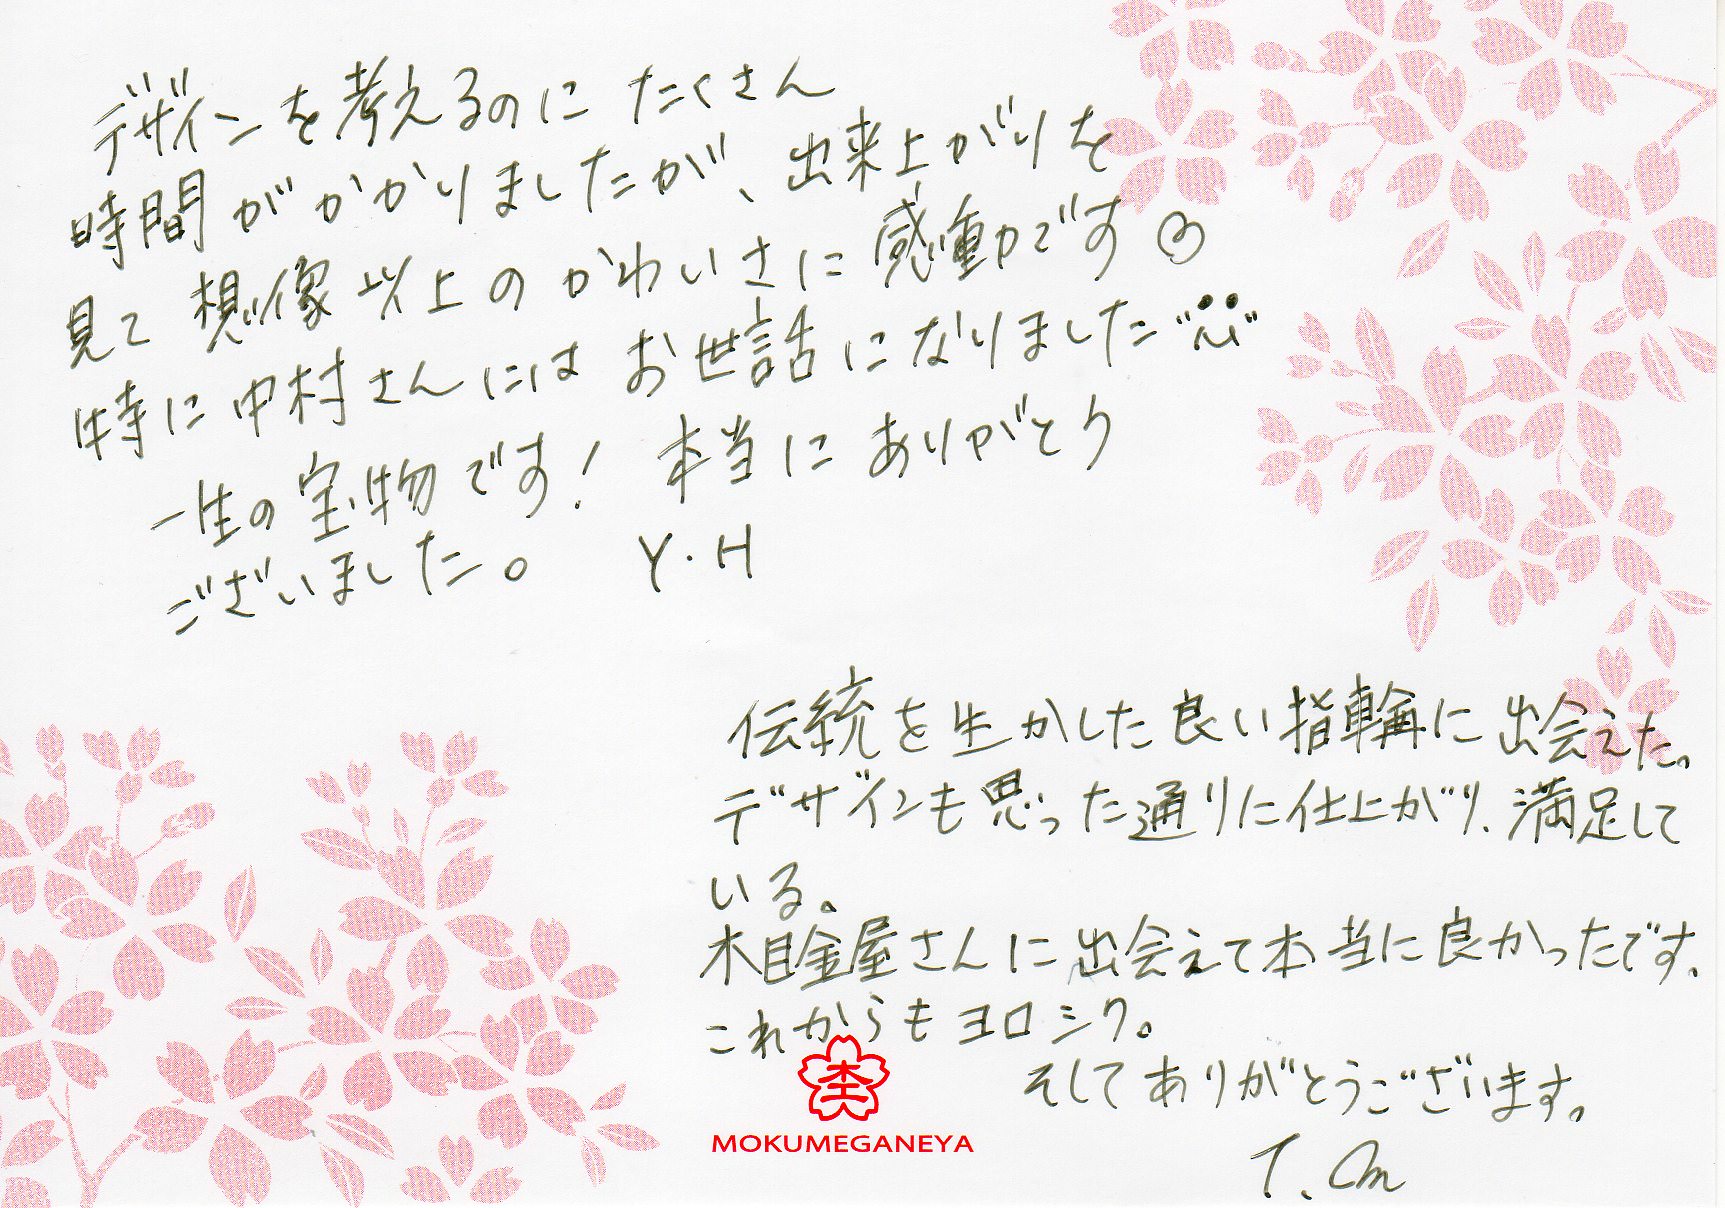 デザインを考えるのに たくさん
時間がかかりましたが、出来上がりを
見て 想像以上の かわいさに 感動です
特に 中村さんには お世話になりました
一生の宝物です! 本当に ありがとう
ございました。 Y.H
伝統を生かした良い指輪に出会えた。
デザインも思った通りに仕上がり、満足して
いる。
木目金屋さんに出会えて本当に良かったです。
これからもヨロシク。
そしてありがとうございます。
T.
MOKUMEGANEYA